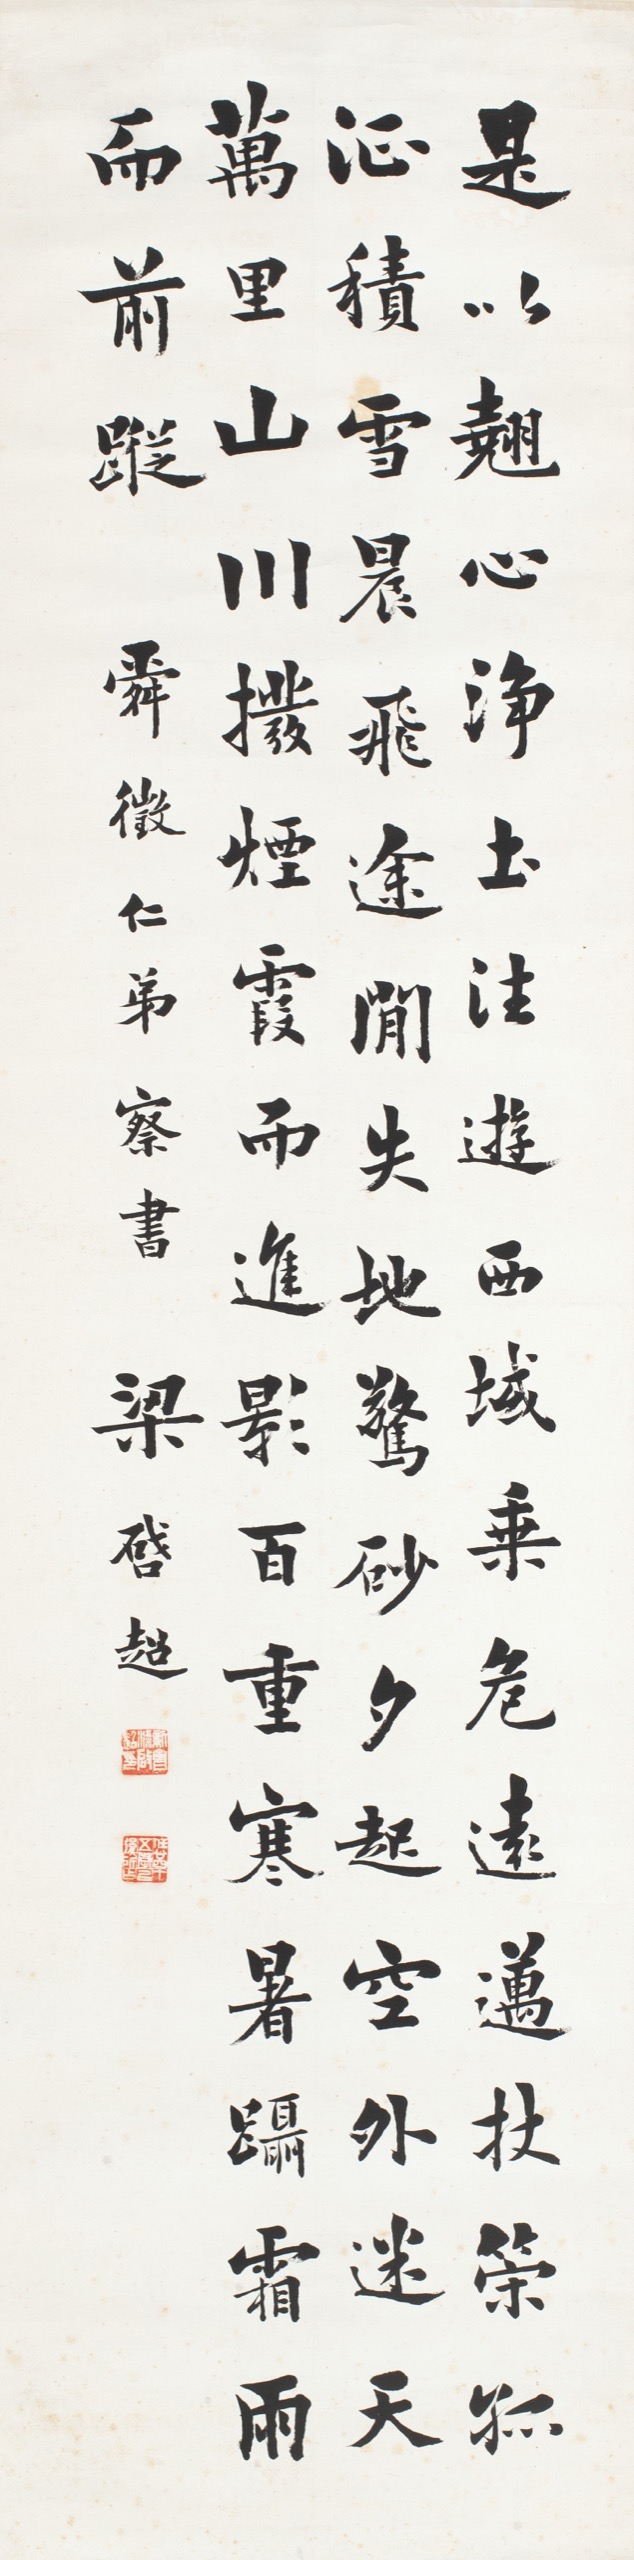 是以翹心淨土往遊西域乗危遠邁杖策孤
征積雪晨飛途閒失地驚砂夕起空外迷天
萬里山川撥煙霞而進影百重寒暑躡霜雨
而前蹤
舜徵仁弟察書
梁啓超